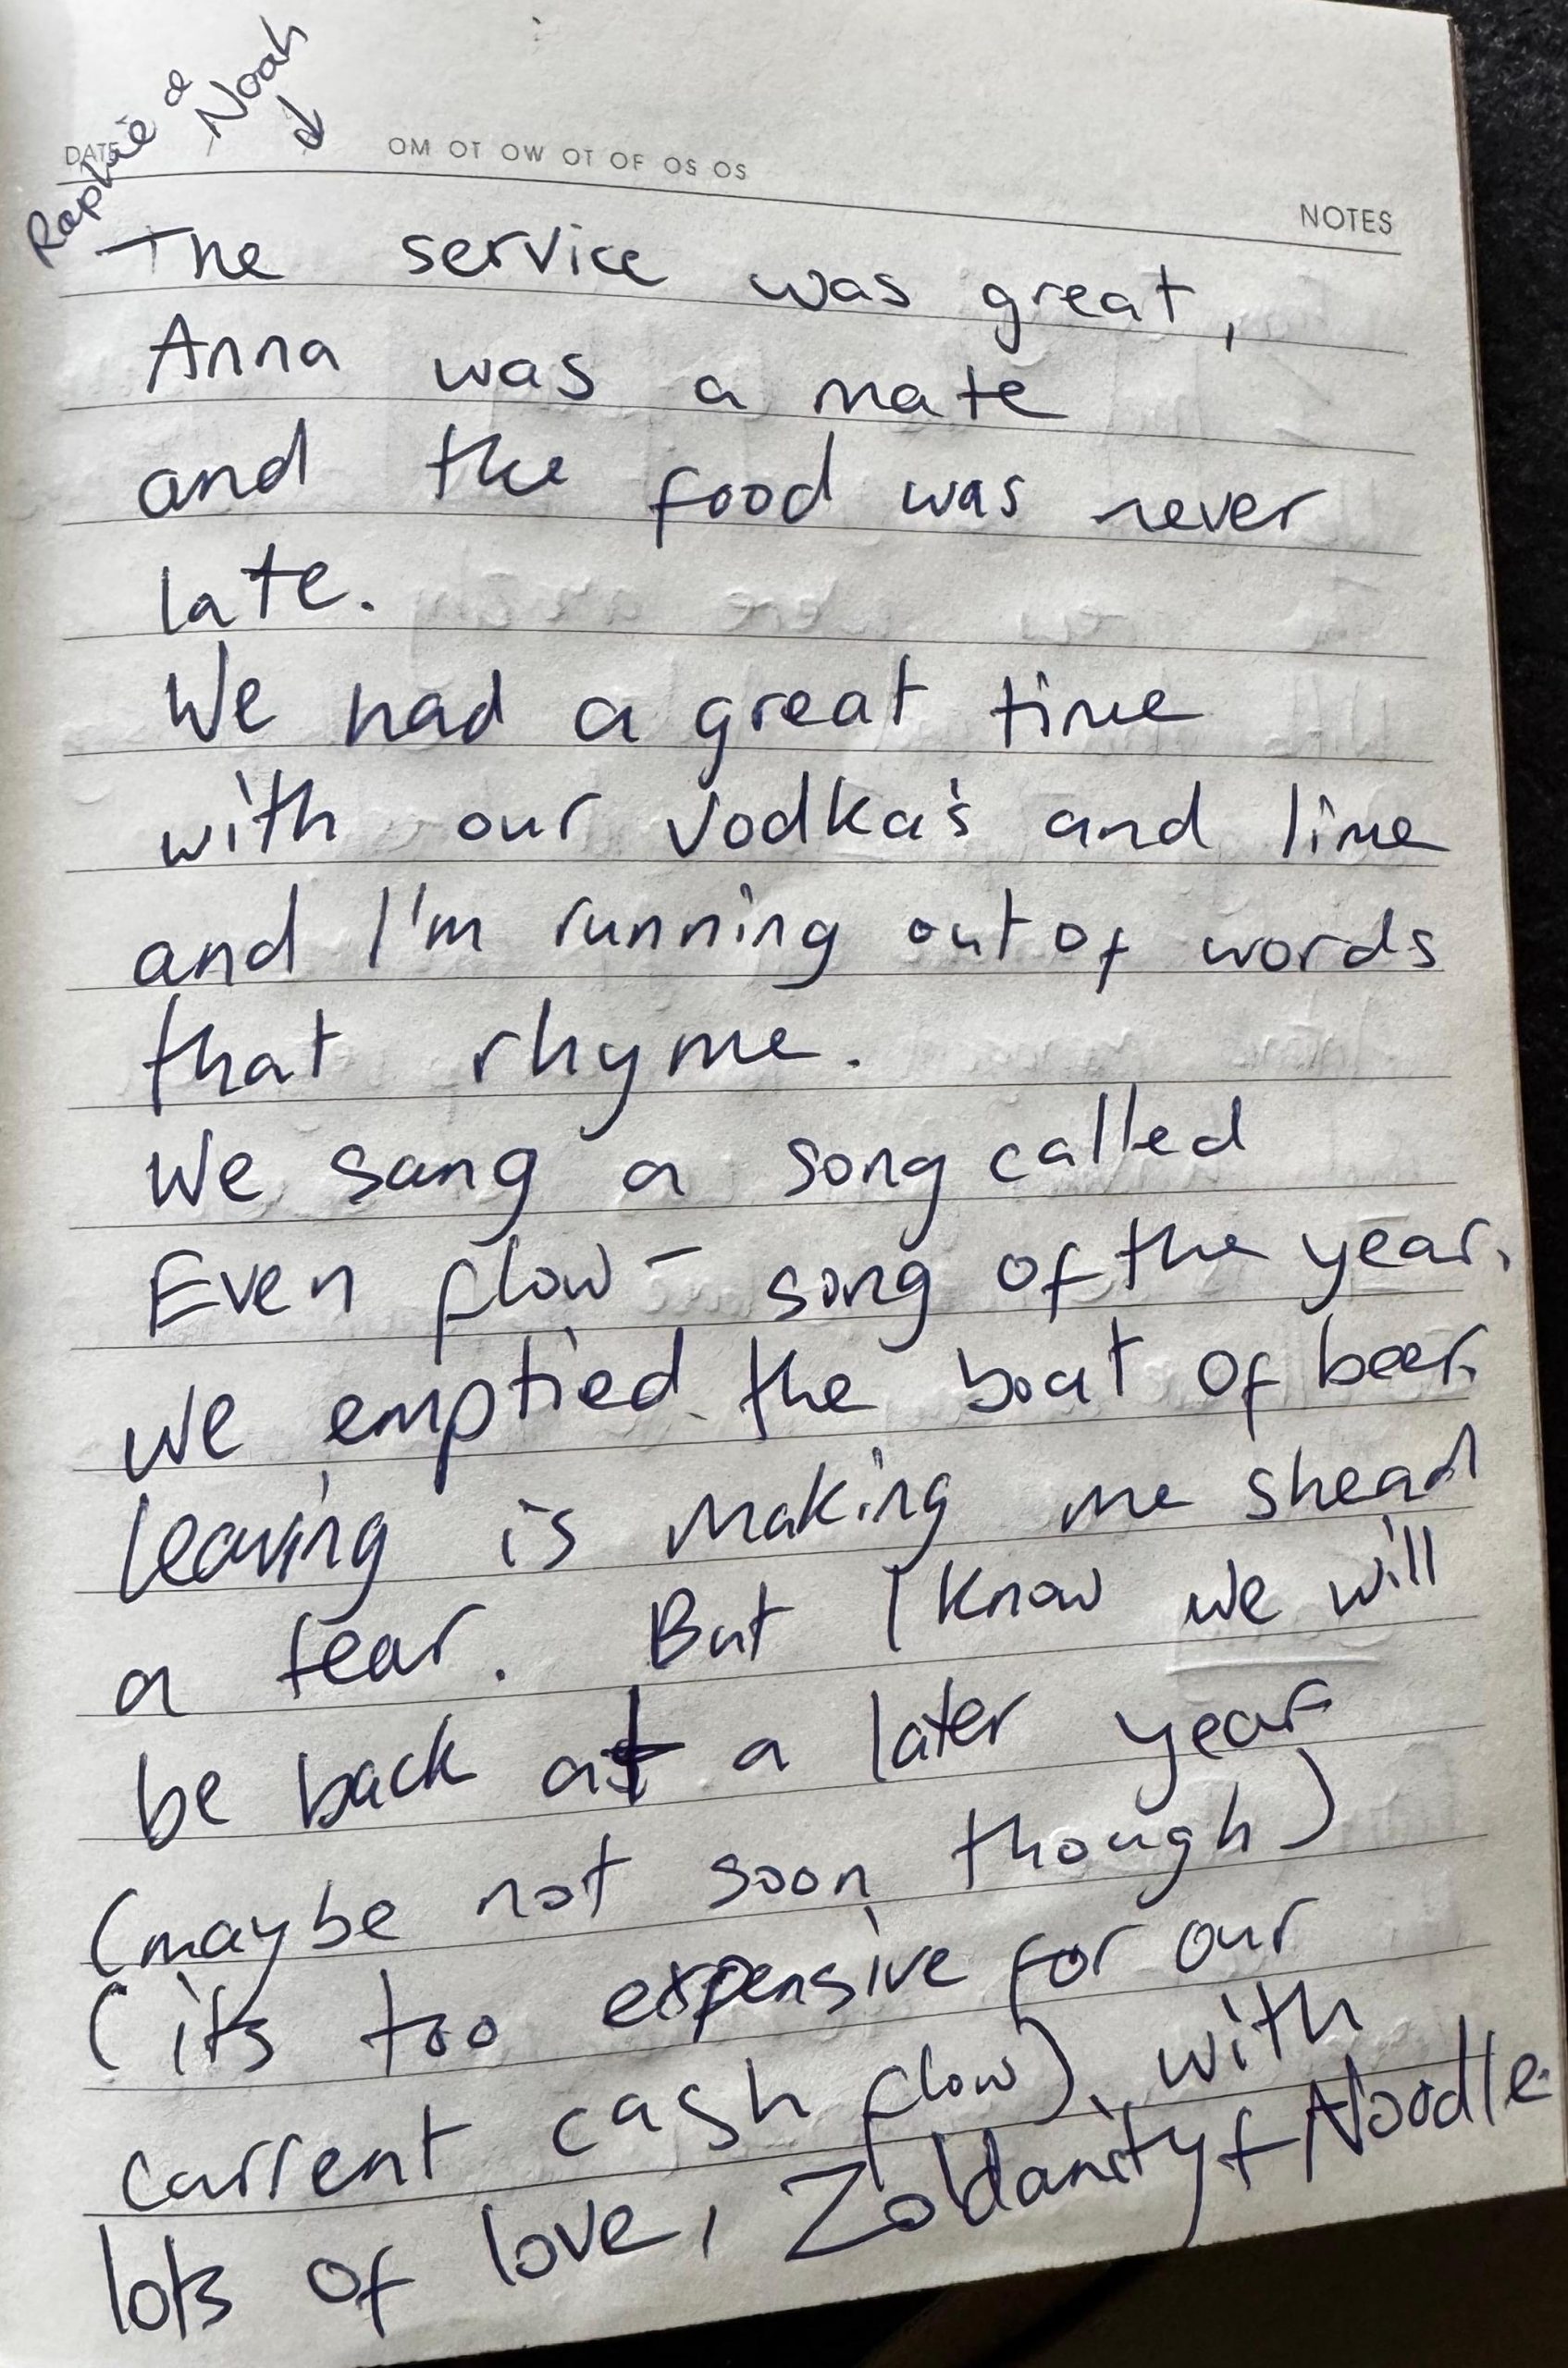 Raphaë &
Noah
↓
DATE / / OM OT OW OT OF OS OS
NOTES
The service was great,
Anna was a mate
and the food was never
late.
We had a great time
with our vodka's and lime
and I'm running out of words
that rhyme.
We sang a song called
Even flow - song of the year.
We emptied the boat of beer.
leaving is making me shead
a tear. But I know we will
be back at a later year
(maybe not soon though)
(its too expensive for our
current cash flow), with
lots of love, Zoldanity + Noodle.